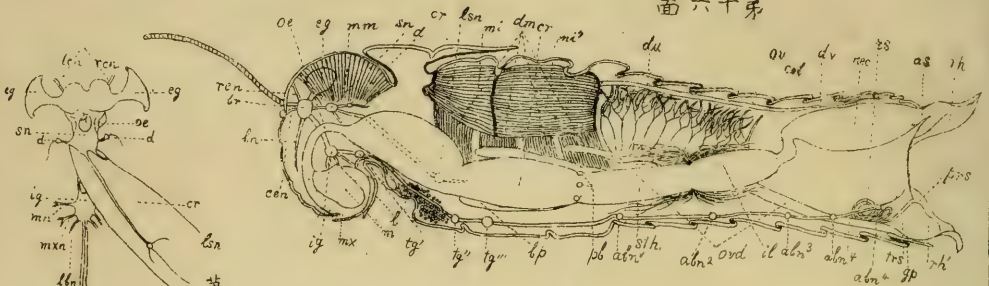 面六十第
oe eg mm sn d cr lsn mi dm cr mi² du ov col dv rec rs as rh
lcn rcn
eg eg
oe
sn
d d
ig
mn
mxn
lbn
cr
lsn
rcn
br
ln
cen
ig mx m l tg' tg'' tg''' bp pb abn' sth. abn² ovd il abn³ abn⁴ trs gp rh'
abn⁴
prs